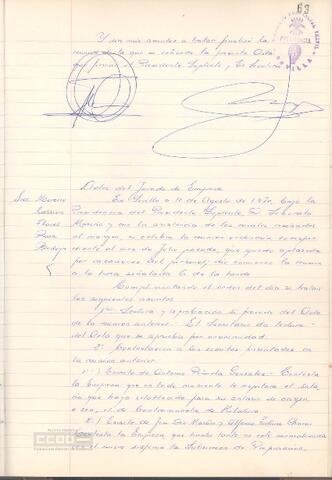 63
Y sin más asuntos a tratar finalizó la
reunión de la que se extiende la presente Acta
que firman el Presidente Suplente y el Secretario
SEVILLA
Acta del Jurado de Empresa
Sres. Moreno
En Sevilla a 10 de Agosto de 1970, bajo la
Presidencia del Presidente Suplente D. Liborato
Flores
Marín y con la asistencia de los vocales reseñados
Ruiz
al margen, se celebra la reunión ordinaria correspon-
diente al mes de Julio pasado, que quedó aplazada
por vacaciones del personal, dio comienzo la reunión
a la hora señalada 6 de la tarde
Cumplimentando el orden del día se tratan
los siguientes asuntos
1º Lectura y aprobación si procede del Acta
de la reunión anterior. El Secretario da lectura
del Acta que se aprueba por unanimidad.
2º Contestación a los escritos presentados en
la reunión anterior.
a) Escrito de Antonio Gonzalez - Contesta
la Empresa que en todo momento le respetara el sala-
rio que haya estipulado para su salario de cargo
o sea, el de Contramaestre de Hilatura.
b) Escrito de y Alfonso
Contesta la Empresa que hasta tanto no esté mecanizado
en el nuevo sistema la Subsección de Preparación
CCOO